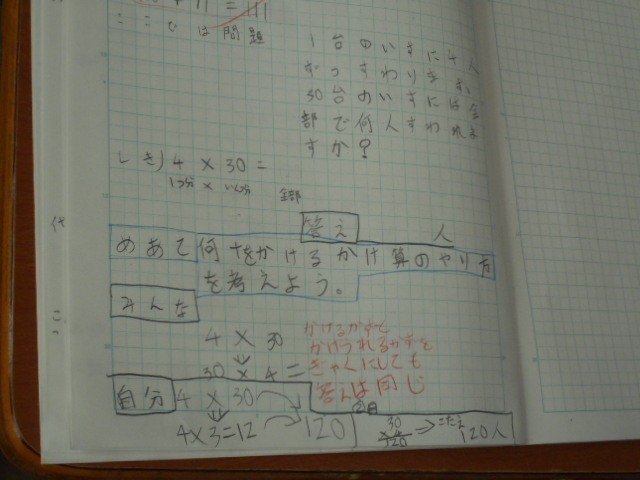 11 = 111
ここでは問題
1台のいすに4人
ずつすわります。
30台のいすには全
部で何人すわれま
すか？
しき) 4 × 30 =
1つ分 × いくつ分 全部
答え 人
めあて 何十をかけるかけ算のやり方
を考えよう。
みんな
4 × 30
30 × 4 =
かけるかずと
かけられるかずを
ぎゃくにしても
答えは同じ
自分 4 × 30
4×3=12 120
②日
30
×4
120
⇒こたえ
120人